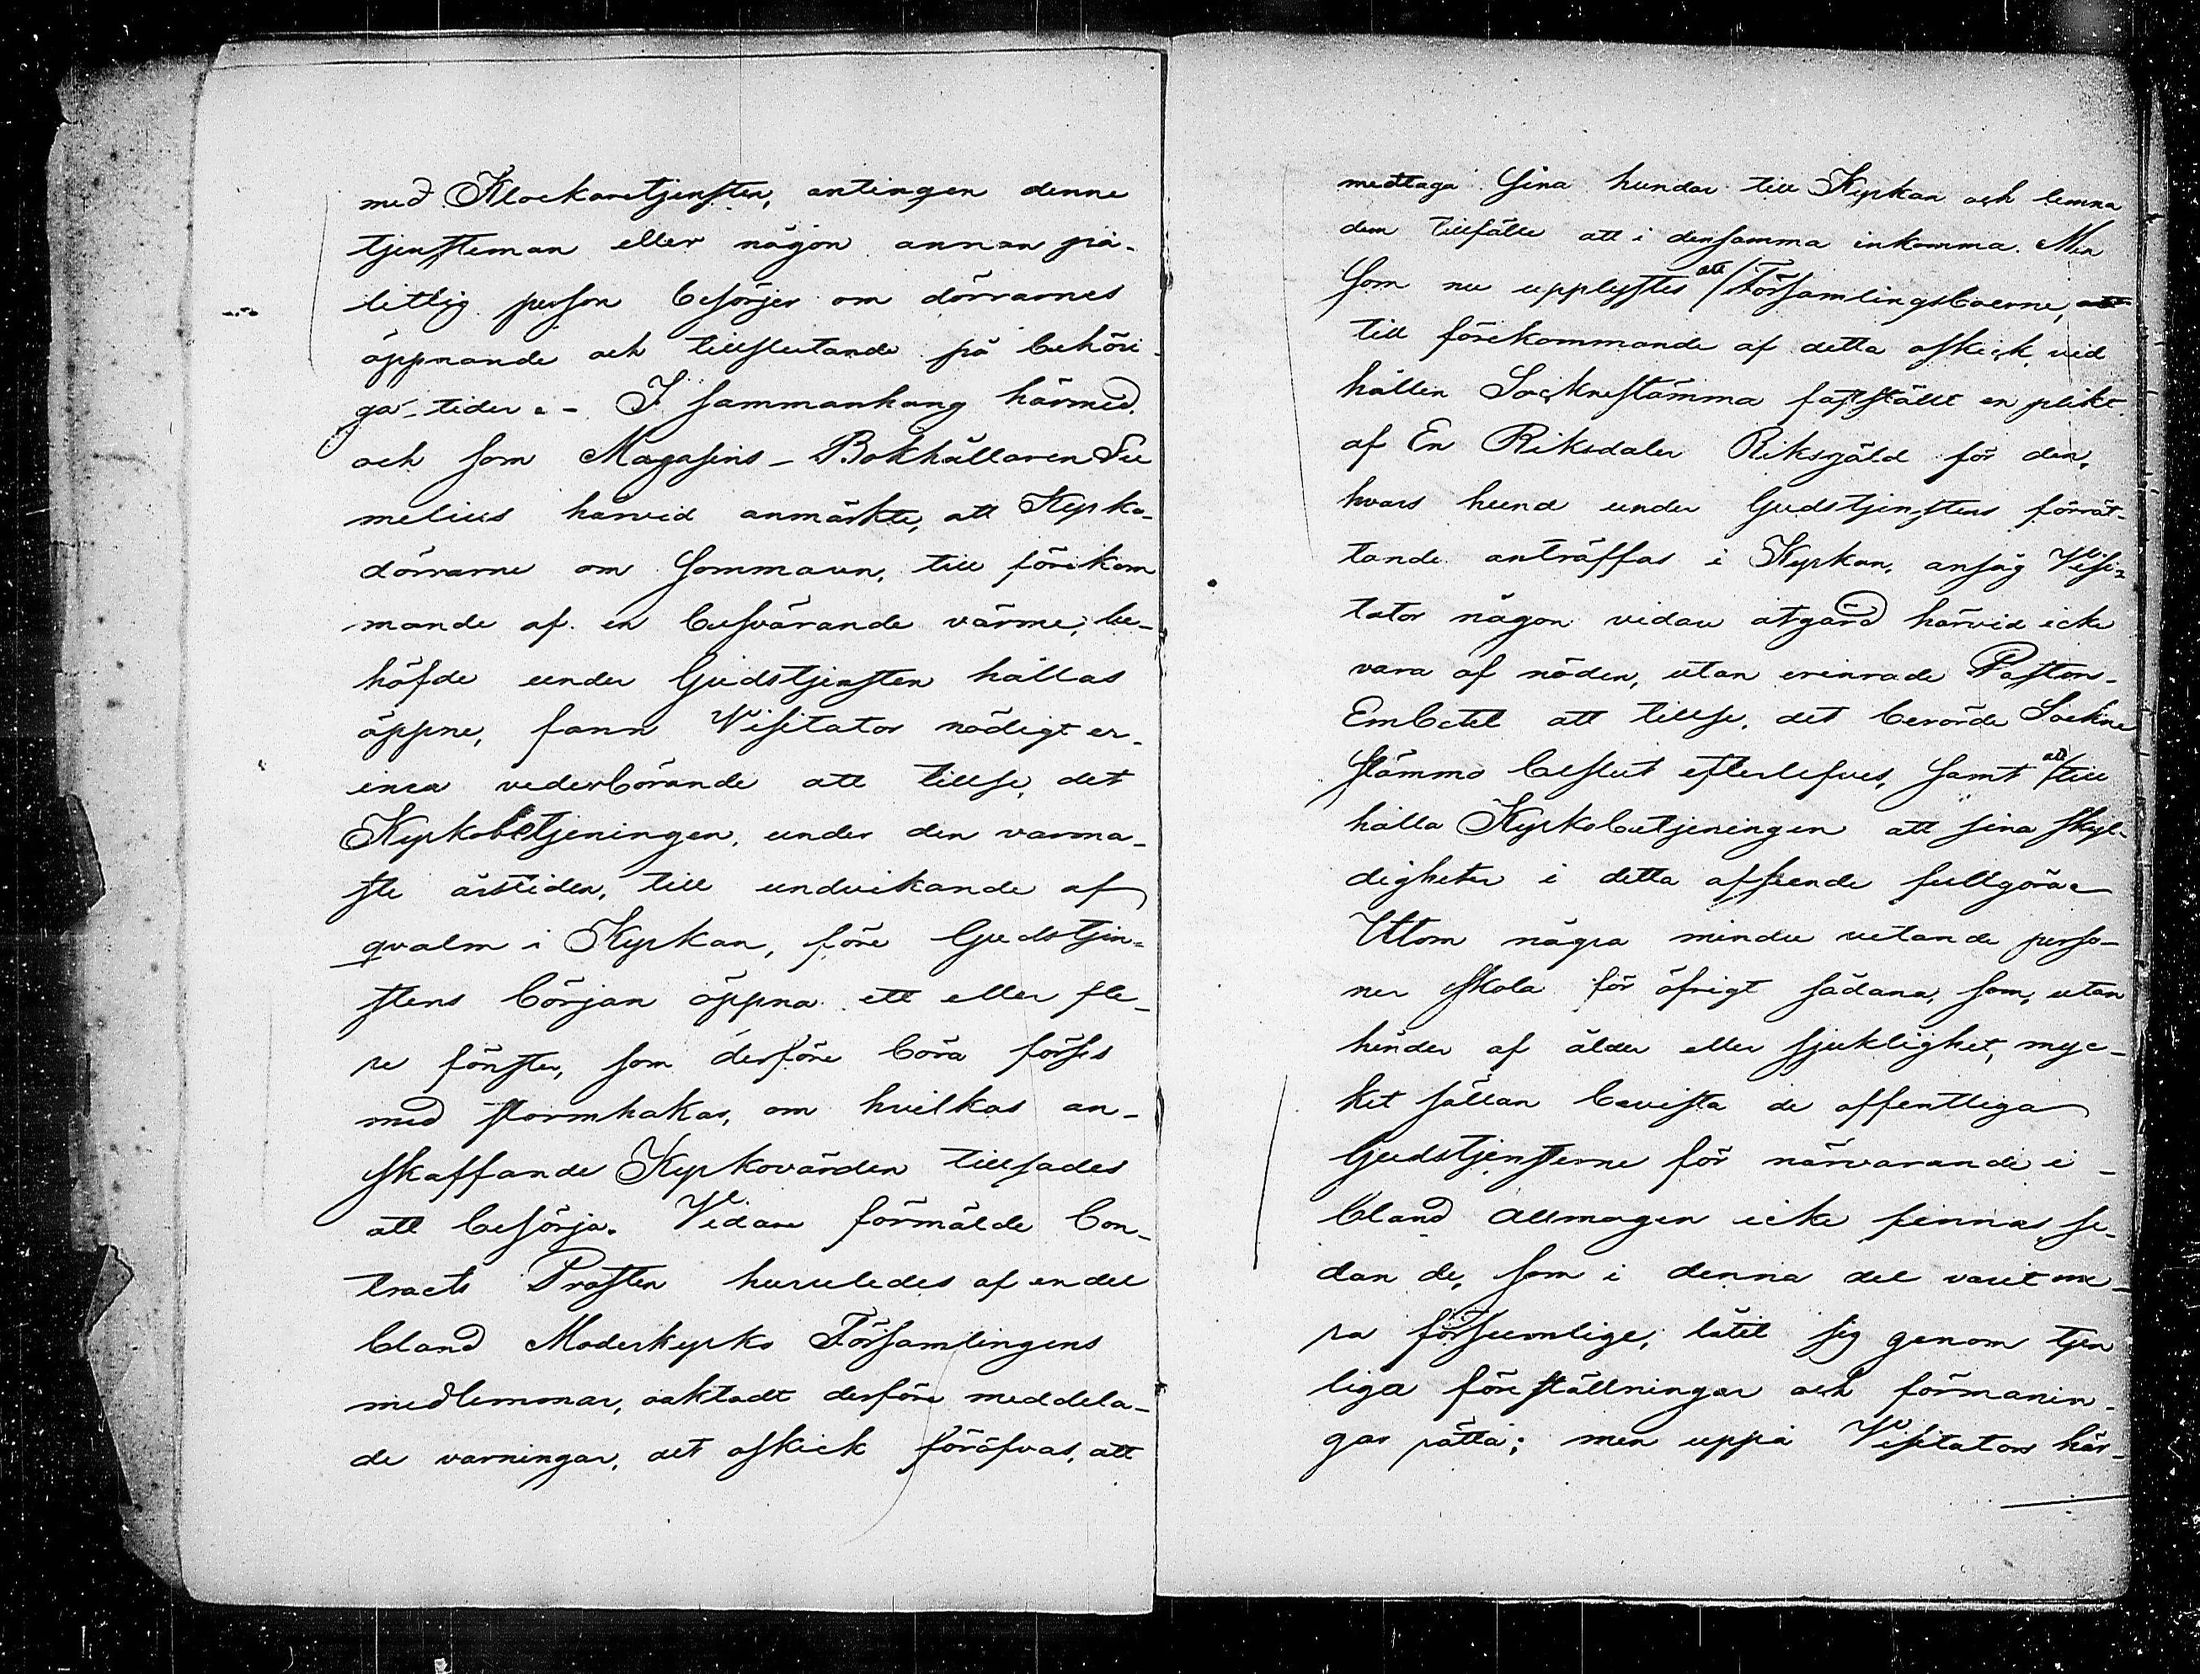 med Klockaretjensten, antingen denne
tjensteman eller någon annan på-
litlig person besörjer om dörrarnes
öppnande och tillslutande på behöri-
ga tider. - I sammanhang härmed
och som Magasins-Bokhållaren Si
melius härvid anmärkte, att Kyrko-
dörrarne om Sommaren, till förekom
mande af en besvärande värme, be-
höfde under Gudstjensten hållas
öppne, fann Visitator nödigt er-
inra vederbörande att tillse, det
Kyrkobetjeningen, under den varma-
ste årstiden, till undvikande af
qvalm i Kyrkan, före Gudstjen-
stens början öppna ett eller fle-
re fönster, som derföre böra förses
med stormhakar, om hvilkas an-
skaffande Kyrkovärden tillsades
att besörja. Vidare förmälde Con-
tracts Prosten huruledes af en del
bland Moderkyrko Församlingens
medlemmar, oaktadt derföre meddela-
de varningar, det oskick föröfvas, att
medtaga sina hundar till Kyrkan och lemna
dem tillfälle att i densamma inkomma. Men
Som nu upplystes att Församlingsboerne, att
till förekommande af detta oskick vid
hållen Socknestämma fastställt en plikt
af En Riksdaler Riksgäld för den,
hvars hund under Gudstjenstens förrät-
tande anträffas i Kyrkan, ansåg Visi-
tator någon vidare åtgärd härvid icke
vara af nöden, utan erinrade Pastors-
Embetet att tillse, det berörde Sockne
stämmo beslut efterlefves, samt att till
hålla Kyrkobetjeningen att sina skyl-
digheter i detta afseende fullgöra.
Utom några mindre vetande perso-
ner skola för öfrigt sådana, som, utan
hinder af ålder eller sjuklighet, myc-
ket sällan bevista de offentliga
Gudstjensterne för närvarande i-
bland Allmogen icke finnas, se-
dan de, som i denna del varit me-
ra försumlige, låtit sig genom tjen
liga föreställningar och förmanin-
gar rätta; men uppå Visitators här-